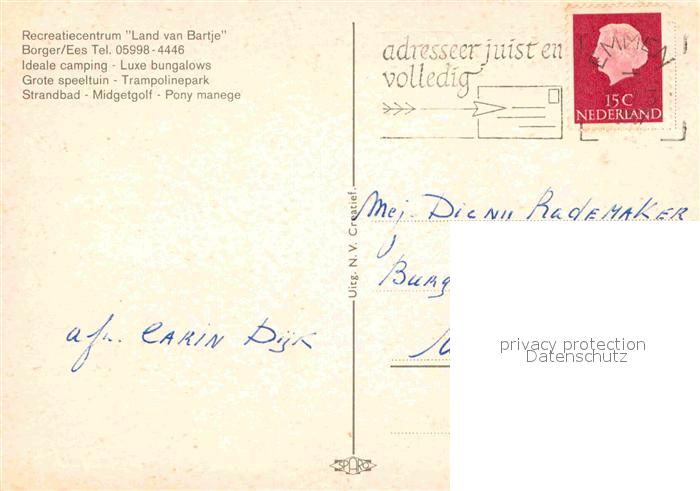 Recreatiecentrum "Land van Bartje"
Borger/Ees Tel. 05998-4446
Ideale camping - Luxe bungalows
Grote speeltuin - Trampolinepark
Strandbad - Midgetgolf - Pony manege
adresseer juist en
volledig
EMMEN
15C
NEDERLAND
Uitg. N.V. Creatief.
Mej. Dienii Rademaker
Burg
afz. Carin Dijk
privacy protection
Datenschutz
SPARO